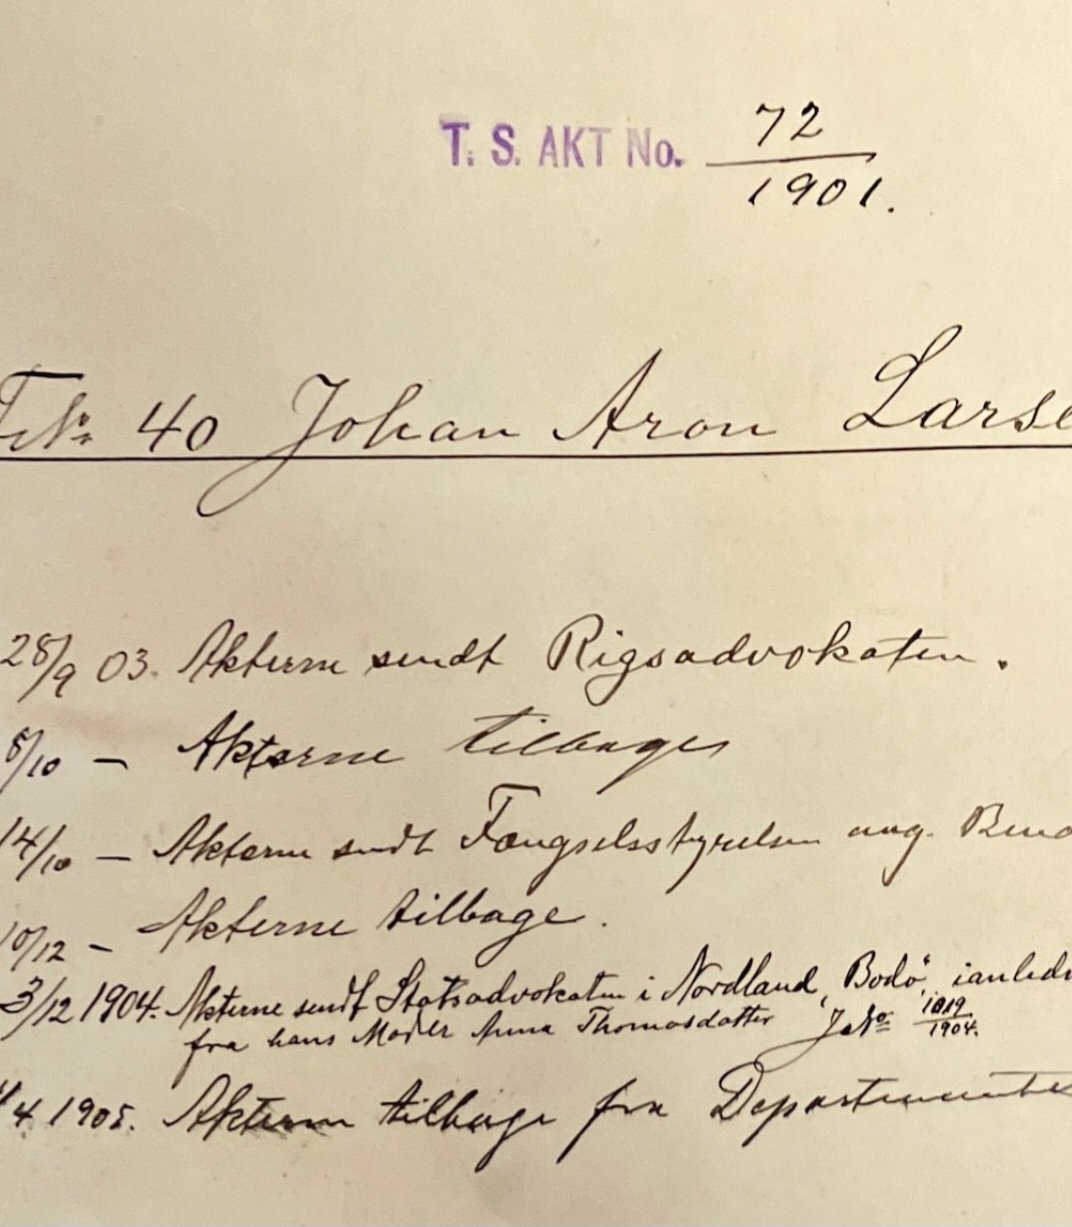 T. S. AKT No. 72
1901.
Fnr 40 Johan Aron Larse
28/9 03. Akterne sendt Rigsadvokaten.
8/10 — Akterne tilbage
14/10 — Akterne sendt Fængselsstyrelsen ang.
10/12 — Akterne tilbage.
3/12 1904. Akterne sendt Statsadvokaten i Nordland, Bodø, ianledn
fra hans Moder Anna Thomasdatter JNo 1819
1904.
/4 1905. Akterne tilbage fra Departemente